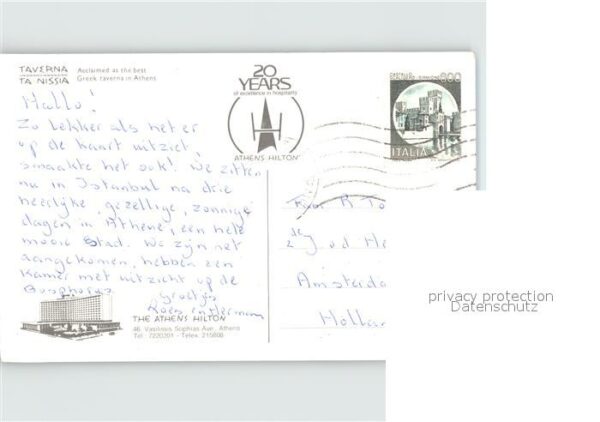 TAVERNA
TA NISSIA
Acclaimed as the best
Greek taverna in Athens
20
YEARS
of excellence in hospitality
ATHENS HILTON
600
ITALIA
Hallo!
Zo lekker als het er
op de kaart uitziet,
smaakte het ook! We zitten
nu in Istanbul na drie
heerlijke, gezellige, zonnige
dagen in Athene, een hele
mooie stad. We zijn net
aangekomen, hebben een
kamer met uitzicht op de
Bosphorus.
Groetjes
Koen en Hermann
R To
2e J v d He
Amsterda
Hollan
THE ATHENS HILTON
46 Vasilissis Sophias Ave., Athens
Tel. 7220201 - Telex. 215808
privacy protection
Datenschutz